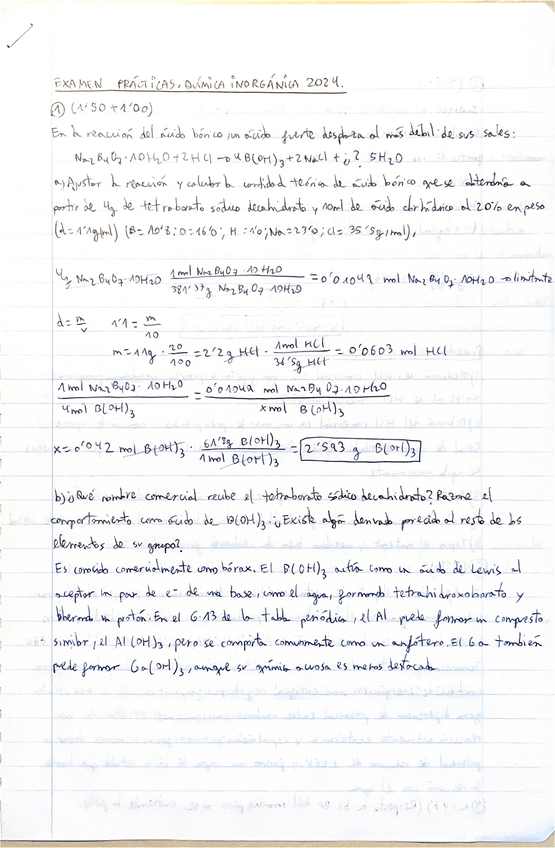 EXAMEN PRÁCTICAS. QUÍMICA INORGÁNICA 2024.
① (1'50 + 1'00)
En la reacción del ácido bórico, un ácido fuerte desplaza al más débil de sus sales:
Na₂B₄O₇·10H₂O + 2HCl → 4B(OH)₃ + 2NaCl + ¿? 5H₂O
a) Ajustar la reacción y calcular la cantidad teórica de ácido bórico que se obtendría a
partir de 4g de tetraborato sódico decahidrato y 10ml de ácido clorhídrico al 20% en peso
(d = 1'1g/ml) (B = 10'8; O = 16'0; H = 1'0; Na = 23'0; Cl = 35'5g/mol).
4g Na₂B₄O₇·10H₂O · 1mol Na₂B₄O₇·10H₂O / 381'37g Na₂B₄O₇·10H₂O = 0'01049 mol Na₂B₄O₇·10H₂O → limitante
d = m/v 1'1 = m/10
m = 11g · 20/100 = 2'2g HCl · 1mol HCl / 36'5g HCl = 0'0603 mol HCl
1mol Na₂B₄O₇·10H₂O / 4mol B(OH)₃ = 0'01049 mol Na₂B₄O₇·10H₂O / x mol B(OH)₃
x = 0'042 mol B(OH)₃ · 61'8g B(OH)₃ / 1mol B(OH)₃ = 2'593 g B(OH)₃
b) ¿Qué nombre comercial recibe el tetraborato sódico decahidrato? Razone el
comportamiento como ácido de B(OH)₃. ¿Existe algún derivado parecido al resto de los
elementos de su grupo?
Es conocido comercialmente como bórax. El B(OH)₃ actúa como un ácido de Lewis al
aceptar un par de e⁻ de una base, como el agua, formando tetrahidroxoborato y
liberando un protón. En el G.13 de la tabla periódica, el Al puede formar un compuesto
similar, el Al(OH)₃, pero se comporta comunmente como un anfótero. El Ga también
puede formar Ga(OH)₃, aunque su química acuosa es menos destacada.